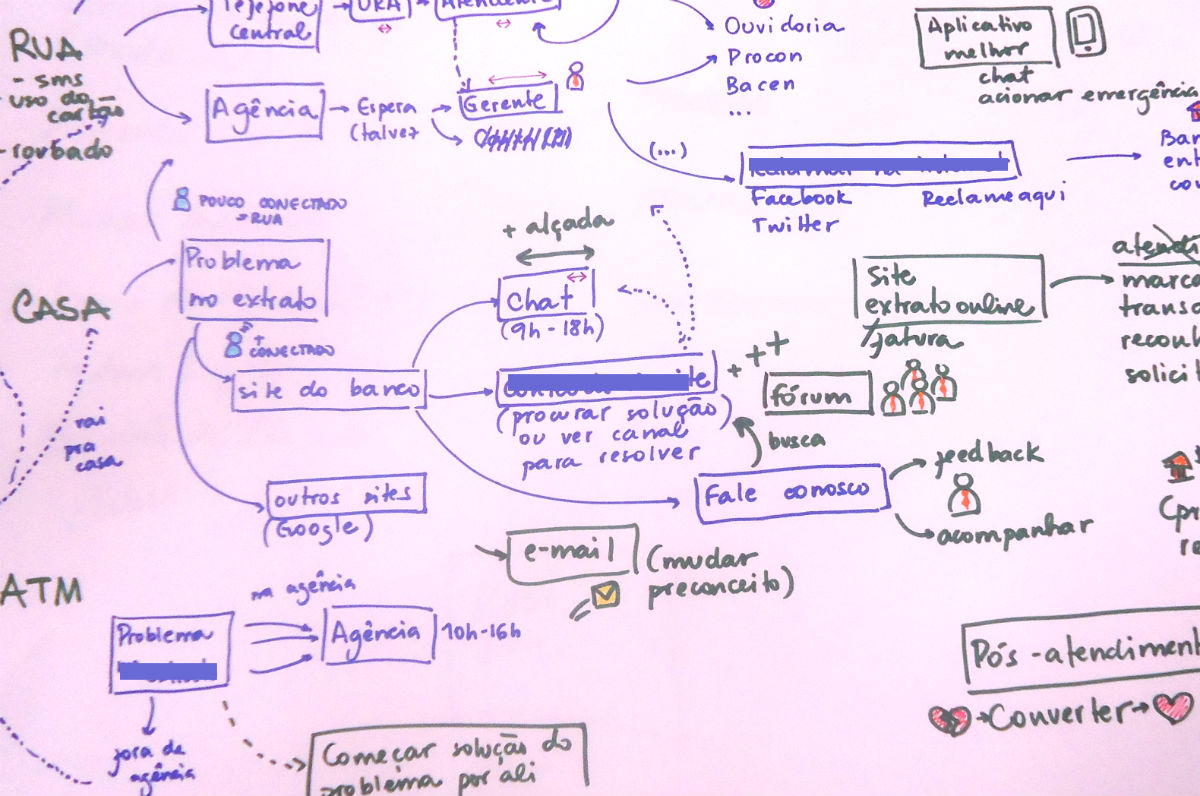 RUA
- sms
uso do
cartão
- roubado
Telefone
central
URA
Atendente
Agência
Espera
(talvez
Gerente
Ouvidoria
Procon
Bacen
...
(...)
Facebook
Twitter
Reclameaqui
Aplicativo
melhor
chat
acionar emergência
POUCO CONECTADO
→ RUA
CASA
Problema
no extrato
+
CONECTADO
+ alçada
Chat
(9h - 18h)
site do banco
(procurar solução)
ou ver canal
para resolver
+ + +
fórum
busca
site
extrato online
/fatura
vai
pra
casa
outros sites
(Google)
Fale conosco
feedback
acompanhar
e-mail
(mudar
preconceito)
ATM
na agência
Problema
Agência
10h-16h
fora de
agência
Começar solução do
problema por ali
Pós-atendiment
→Converter→